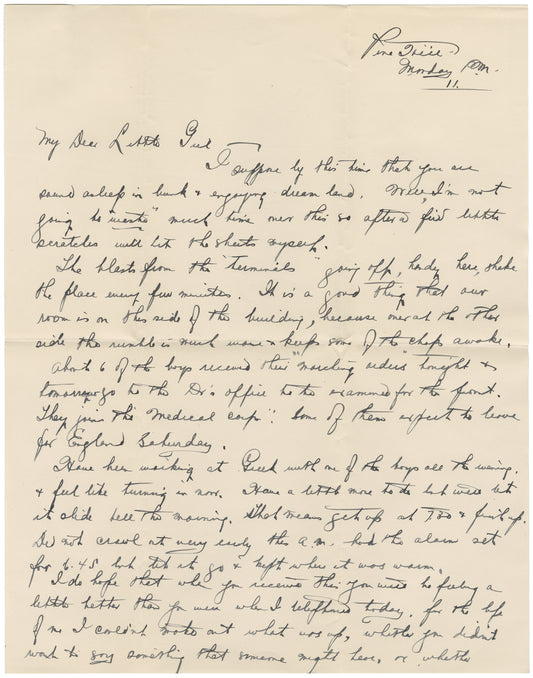 Pine Hill
Monday P.M.
11.
My Dear Little Girl
I suppose by this time that you are
sound asleep in bunk & enjoying dream land. Well, I'm not
going to "waste" much time over this so after a few little
scratches will hit the sheets myself.
The blasts from the "Terminals" going off, handy here, shake
the place every few minutes. It is a good thing that our
room is on this side of the building, because over at the other
side the rumble is much worse & keeps some of the chaps awake.
About 6 of the boys received their "marching orders" tonight &
tomorrow go to the Dr's office to be examined for the front.
They join the "Medical Corp". Some of them expect to leave
for England Saturday.
Have been working at Greek with one of the boys all the evening.
& feel like turning in now. Have a little more to do but will let
it slide till the morning. That means get up at 7.30 & finish up.
Did not crawl out very early this a.m. had the alarm set
for 6.45 but let it go & kept where it was warm.
I do hope that when you receive this you will be feeling a
little better than you were when I telephoned today. For the life
of me I couldn't make out what was up, whether you didn't
want to say something that someone might hear, or whether